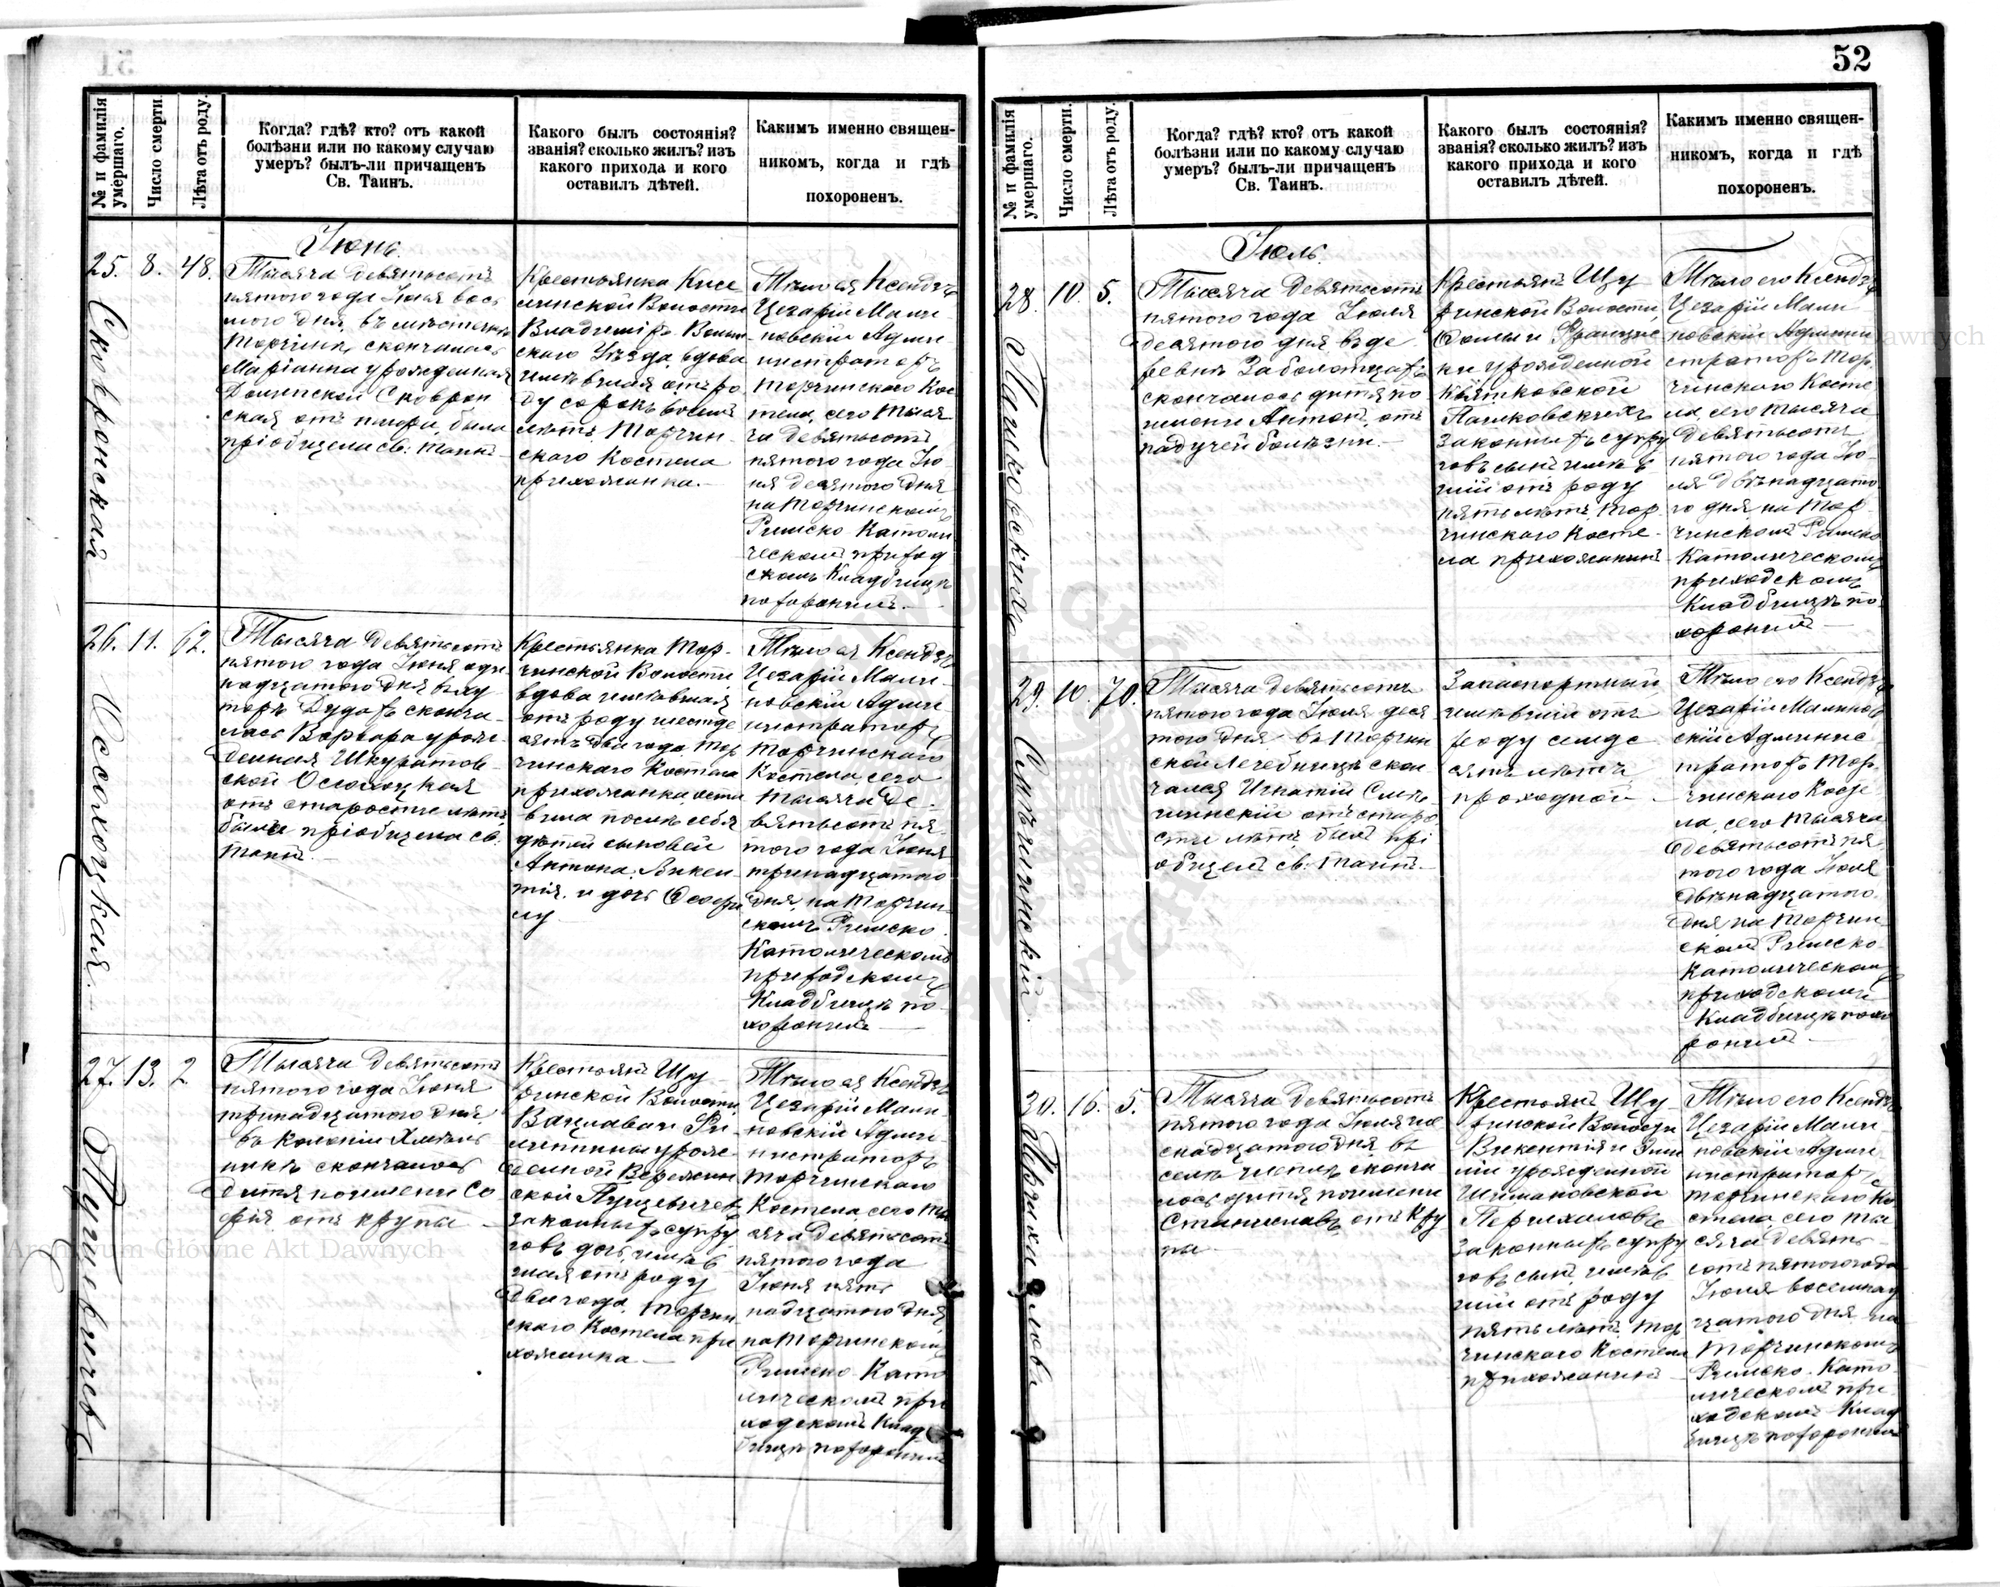 52
№ и фамилія умершаго.
Число смерти.
Лѣта отъ роду.
Когда? гдѣ? кто? отъ какой
болѣзни или по какому случаю
умеръ? былъ-ли причащенъ
Св. Таинъ.
Какого былъ состоянія?
званія? сколько жилъ? изъ
какого прихода и кого
оставилъ дѣтей.
Какимъ именно священ-
никомъ, когда и гдѣ
похороненъ.
Іюнь.
25. 8. 48.
Сковронская
Тысяча девятьсотъ
пятого года Іюня вось
мого дня, въ мѣстечкѣ
Торчинѣ скончалась
Маріанна урожденная
Сковрон
ская отъ была
пріобщена св. таинъ
Крестьянка Кисе
линской Волости
Владимір. Волын
скаго Уѣзда, вдова
имѣвшая отъ ро
ду сорокъ восемь
лѣтъ, Торчин-
скаго Костела
прихожанка.
Тѣло ея Ксендзъ
Цезарій Мали
новскій Адми
нистраторъ
Торчинскаго Кос
тела, сего тыся
ча девятьсотъ
пятого года Ію
ня десятого дня
на Торчинскомъ
Римско Католи
ческомъ приход
скомъ Кладбищѣ
похоронилъ.
26. 11. 62.
Осолохоцкая.
Тысяча девятьсотъ
пятого года Іюня оди
надцатого дня въ ху
торѣ сконча
лась Варвара урож
денная Шкуратов
ской
отъ старости лѣтъ
была пріобщена св.
таинъ
Крестьянка Тор-
чинской Волости
вдова имѣвшая
отъ роду шестьде
сятъ два года Тор
чинскаго Костела
прихожанка, оста
вила послѣ себя
дѣтей сыновей
Антона, Викен
тія и дочь
Тѣло ея Ксендзъ
Цезарій Мали
новскій Адми
нистраторъ
Торчинскаго
Костела, сего
тысяча де-
вятьсотъ пя-
того года Іюня
тринадцатого
дня, на Торчин
скомъ Римско
Католическомъ
приходскомъ
Кладбищѣ по-
хоронилъ
27. 13. 2
Пуцевичева
Тысяча девятьсотъ
пятого года Іюня
тринадцатого дня,
въ колоніи Хмѣль
никъ скончалось
дитя по имени Со
фія отъ крупы
Крестьянъ Щу
ринской Волости,
Вацлава и
урож
денной
Пуцевичевъ
законныхъ супру
говъ дочь, имѣв
шая отъ роду
два года, Торчин
скаго Костела при
хожанка
Тѣло ея Ксендзъ
Цезарій Мали
новскій Адми
нистраторъ
Торчинскаго
Костела, сего ты
сяча девятьсотъ
пятого года
Іюня пят
надцатого дня,
на Торчинскомъ
Римско Като
лическомъ при
ходскомъ Клад
бищѣ похоронилъ
№ и фамилія умершаго.
Число смерти.
Лѣта отъ роду.
Когда? гдѣ? кто? отъ какой
болѣзни или по какому случаю
умеръ? былъ-ли причащенъ
Св. Таинъ.
Какого былъ состоянія?
званія? сколько жилъ? изъ
какого прихода и кого
оставилъ дѣтей.
Какимъ именно священ-
никомъ, когда и гдѣ
похороненъ.
Іюль.
28. 10. 5.
Тысяча девятьсотъ
пятого года Іюля
десятого дня въ де
ревнѣ Заболотцахъ
скончалось дитя по
имени Антонъ, отъ
падучей болѣзни.
Крестьянъ Щу
ринской Волости
Фомы и Францис
ки урожденной
Квятковской
законныхъ супру
говъ сынъ имѣв
шій отъ роду
пять лѣтъ, Тор
чинскаго Косте
ла прихожанинъ
Тѣло его Ксендзъ
Цезарій Мали
новскій Админи
страторъ Тор
чинскаго Косте
ла, сего тысяча
девятьсотъ
пятого года Ію
ля двѣнадцато
го дня, на Тор
чинскомъ Римско
Католическомъ
приходскомъ
Кладбищѣ по-
хоронилъ
29. 10. 70.
Тысяча девятьсотъ
пятого года Іюля деся
того дня въ Торчин
ской лечебницѣ скон
чался Игнатій
отъ старо
сти лѣтъ, былъ прі
общенъ св. таинъ
Запаспортный
имѣвшій отъ
роду семьде
сятъ лѣтъ
проходной
Тѣло его Ксендзъ
Цезарій Малинов
скій Админис
траторъ Тор
чинскаго Косте
ла, сего тысяча
девятьсотъ пя
того года Іюля
двѣнадцатого
дня, на Торчин
скомъ Римско
Католическомъ
приходскомъ
Кладбищѣ похо
ронилъ
30. 16. 5.
Тысяча девятьсотъ
пятого года Іюля шес
надцатого дня въ
сконча
лось дитя по имени
Станиславъ, отъ кру
пы
Крестьянъ Щу
ринской Волости
Викентія и
урожденной
Шимановской
законныхъ супру
говъ сынъ, имѣв
шій отъ роду
пять лѣтъ, Тор
чинскаго Костела
прихожанинъ
Тѣло его Ксендзъ
Цезарій Мали
новскій Адми
нистраторъ
Торчинскаго Ко
стела, сего ты
сяча девять
сотъ пятого года
Іюля восемнад
цатого дня, на
Торчинскомъ
Римско Като
лическомъ при
ходскомъ Клад
бищѣ похоронилъ
Archiwum Główne Akt Dawnych